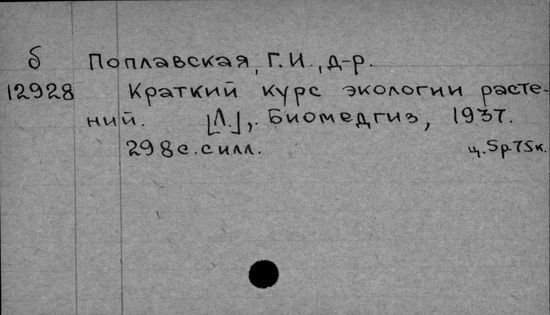 б Поплавская, Г.И., д-р.
12928 Краткий курс экологии расте-
ний. [Л], Биомедгиз, 1937.
298с.силл. ц.5р.75к.